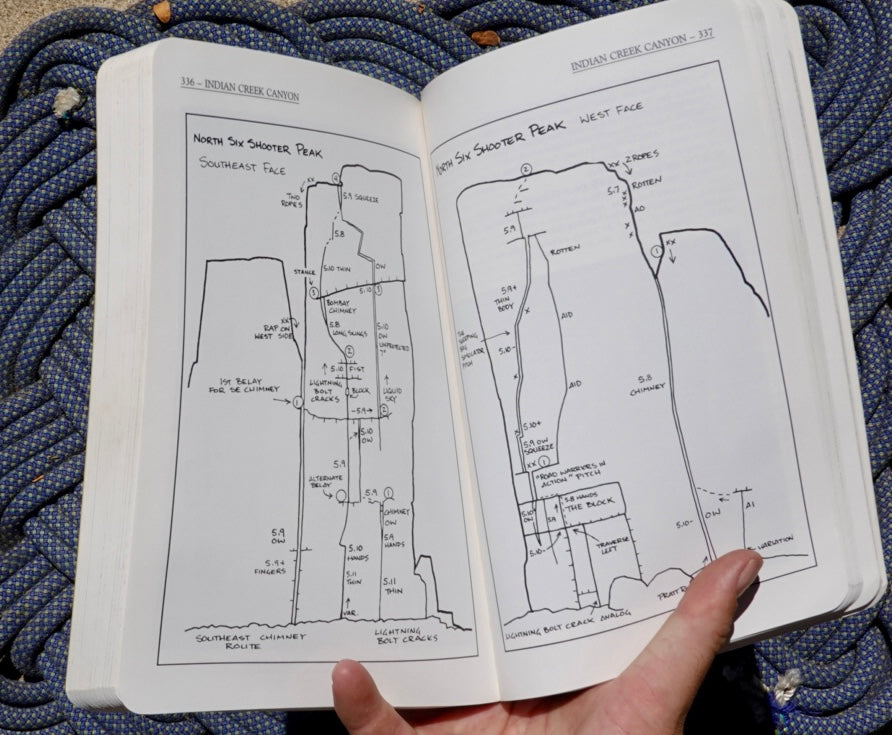 336 – INDIAN CREEK CANYON
NORTH SIX SHOOTER PEAK
SOUTHEAST FACE
XX
TWO
ROPES
4
5.9 SQUEEZE
5.8
5.10 THIN
OW
STANCE
3
5.10
3
BOMBAY
CHIMNEY
XX
RAP ON
WEST SIDE
5.8
LONG SLINGS
5.10
OW
UNPROTECTED
?
2
5.10
FIST
LIGHTNING
BOLT
CRACKS
BLOCK
LIQUID
SKY
1ST BELAY
FOR SE CHIMNEY
1
5.9
2
5.10
OW
5.9
ALTERNATE
BELAY
5.9
1
CHIMNEY
OW
5.9
HANDS
5.9
OW
5.9+
FINGERS
5.10
HANDS
5.11
THIN
5.11
THIN
VAR.
SOUTHEAST CHIMNEY
ROUTE
LIGHTNING
BOLT CRACKS
INDIAN CREEK CANYON – 337
NORTH SIX SHOOTER PEAK WEST FACE
2
XX 2 ROPES
5.7
XXX
ROTTEN
A0
X
X
5.9
ROTTEN
1
XX
5.9+
THIN
BODY
X
AID
5.10-
X
AID
5.8
CHIMNEY
X
5.10+
5.9 OW
SQUEEZE
XX
1
"ROAD WARRIORS IN
ACTION" PITCH
5.10
OW
5.9
5.8 HANDS
THE BLOCK
5.10-
TRAVERSE
LEFT
5.10-
OW
A1
VARIATION
LIGHTNING BOLT CRACK ANALOG
PRATT